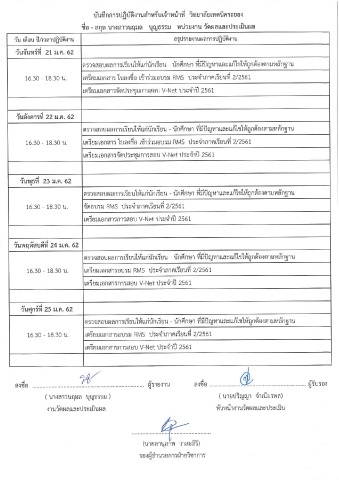 บันทึกการปฏิบัติงานสำหรับเจ้าหน้าที่ วิทยาลัยเทคนิคระยอง
ชื่อ - สกุล นางสาวนฤมล บุญธรรม หน่วยงาน วัดผลและประเมินผล
วัน เดือน ปี/เวลาปฏิบัติงาน สรุปรายงานผลการปฏิบัติงาน
วันจันทร์ที่ 21 ม.ค 62
ตรวจสอบผลการเรียนให้แก่นักเรียน นักศึกษา ที่มีปัญหาและแก้ไขให้ถูกต้องตามหลักฐาน
16.30 - 18.30 น. เตรียมเอกสาร ใบลงชื่อ เข้าร่วมอบรม RMS ประจำภาคเรียนที่ 2/2561
เตรียมเอกสารจัดประชุมการสอบ V-Net ประจำปี 2561
วันอังคารที่ 22 ม.ค 62
ตรวจสอบผลการเรียนให้แก่นักเรียน - นักศึกษา ที่มีปัญหาและแก้ไขให้ถูกต้องตามหลักฐาน
16.30 - 18.30 น. เตรียมเอกสาร ใบลงชื่อ เข้าร่วมอบรม RMS ประจำภาคเรียนที่ 2/2561
เตรียมเอกสารจัดประชุมการสอบ V-Net ประจำปี 2561
วันพุธที่ 23 ม.ค 62
ตรวจสอบผลการเรียนให้แก่นักเรียน - นักศึกษา ที่มีปัญหาและแก้ไขให้ถูกต้องตามหลักฐาน
16.30 - 18.30 น. จัดอบรม RMS ประจำภาคเรียนที่ 2/2561
เตรียมเอกสารการสอบ V-Net ประจำปี 2561
วันพฤหัสบดีที่ 24 ม.ค 62
ตรวจสอบผลการเรียนให้แก่นักเรียน - นักศึกษา ที่มีปัญหาและแก้ไขให้ถูกต้องตามหลักฐาน
16.30 - 18.30 น. เตรียมเอกสารอบรม RMS ประจำภาคเรียนที่ 2/2561
เตรียมเอกสารการสอบ V-Net ประจำปี 2561
วันศุกร์ที่ 25 ม.ค 62
ตรวจสอบผลการเรียนให้แก่นักเรียน - นักศึกษา ที่มีปัญหาและแก้ไขให้ถูกต้องตามหลักฐาน
16.30 - 18.30 น. เตรียมเอกสารอบรม RMS ประจำภาคเรียนที่ 2/2561
เตรียมเอกสารการสอบ V-Net ประจำปี 2561
ลงชื่อ ผู้รายงาน ลงชื่อ ผู้รับรอง
( นางสาวนฤมล บุญธรรม )
งานวัดผลและประเมินผล หัวหน้างานวัดผลและประเมิน
รองผู้อำนวยการฝ่ายวิชาการ